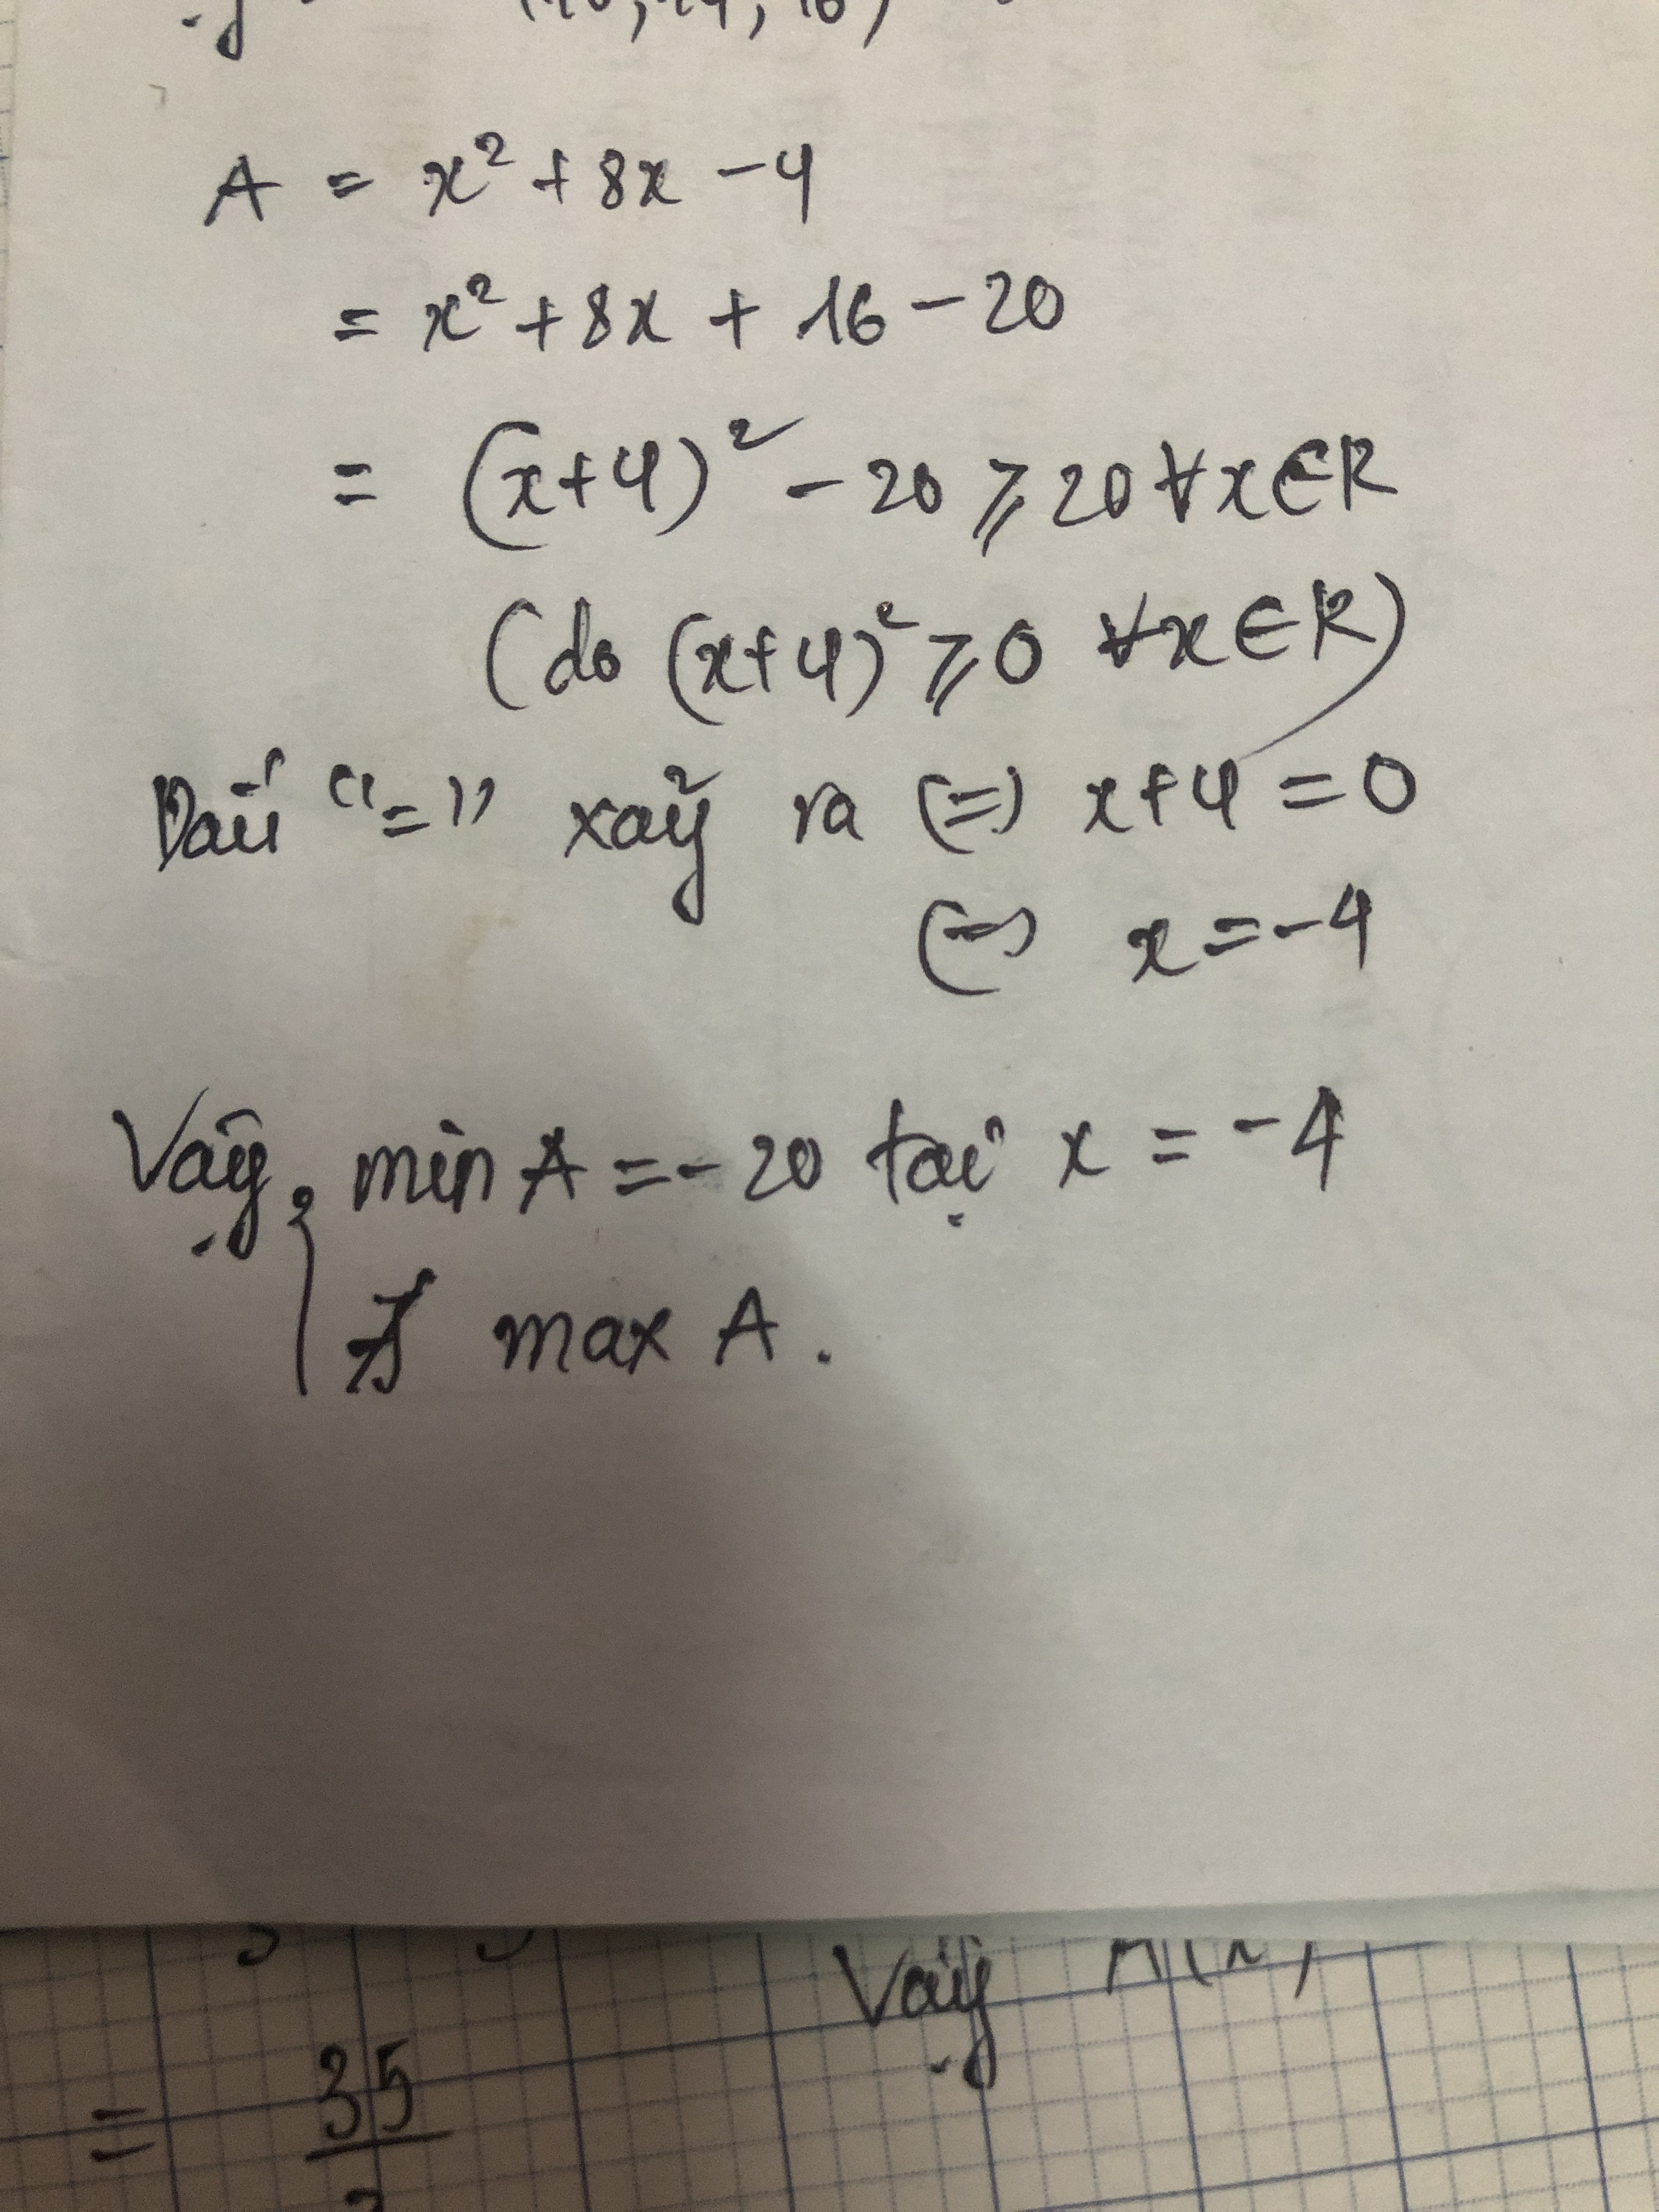 A = x² + 8x - 4
= x² + 8x + 16 - 20
= (x+4)² - 20 ⩾ 20 ∀x∈R
(do (x+4)² ⩾ 0 ∀x∈R)
Dấu "=" xảy ra (=) x+4 = 0
(=) x = -4
Vậy { min A = - 20 tại x = -4
∄ max A.
Vậy A(x)
= 35